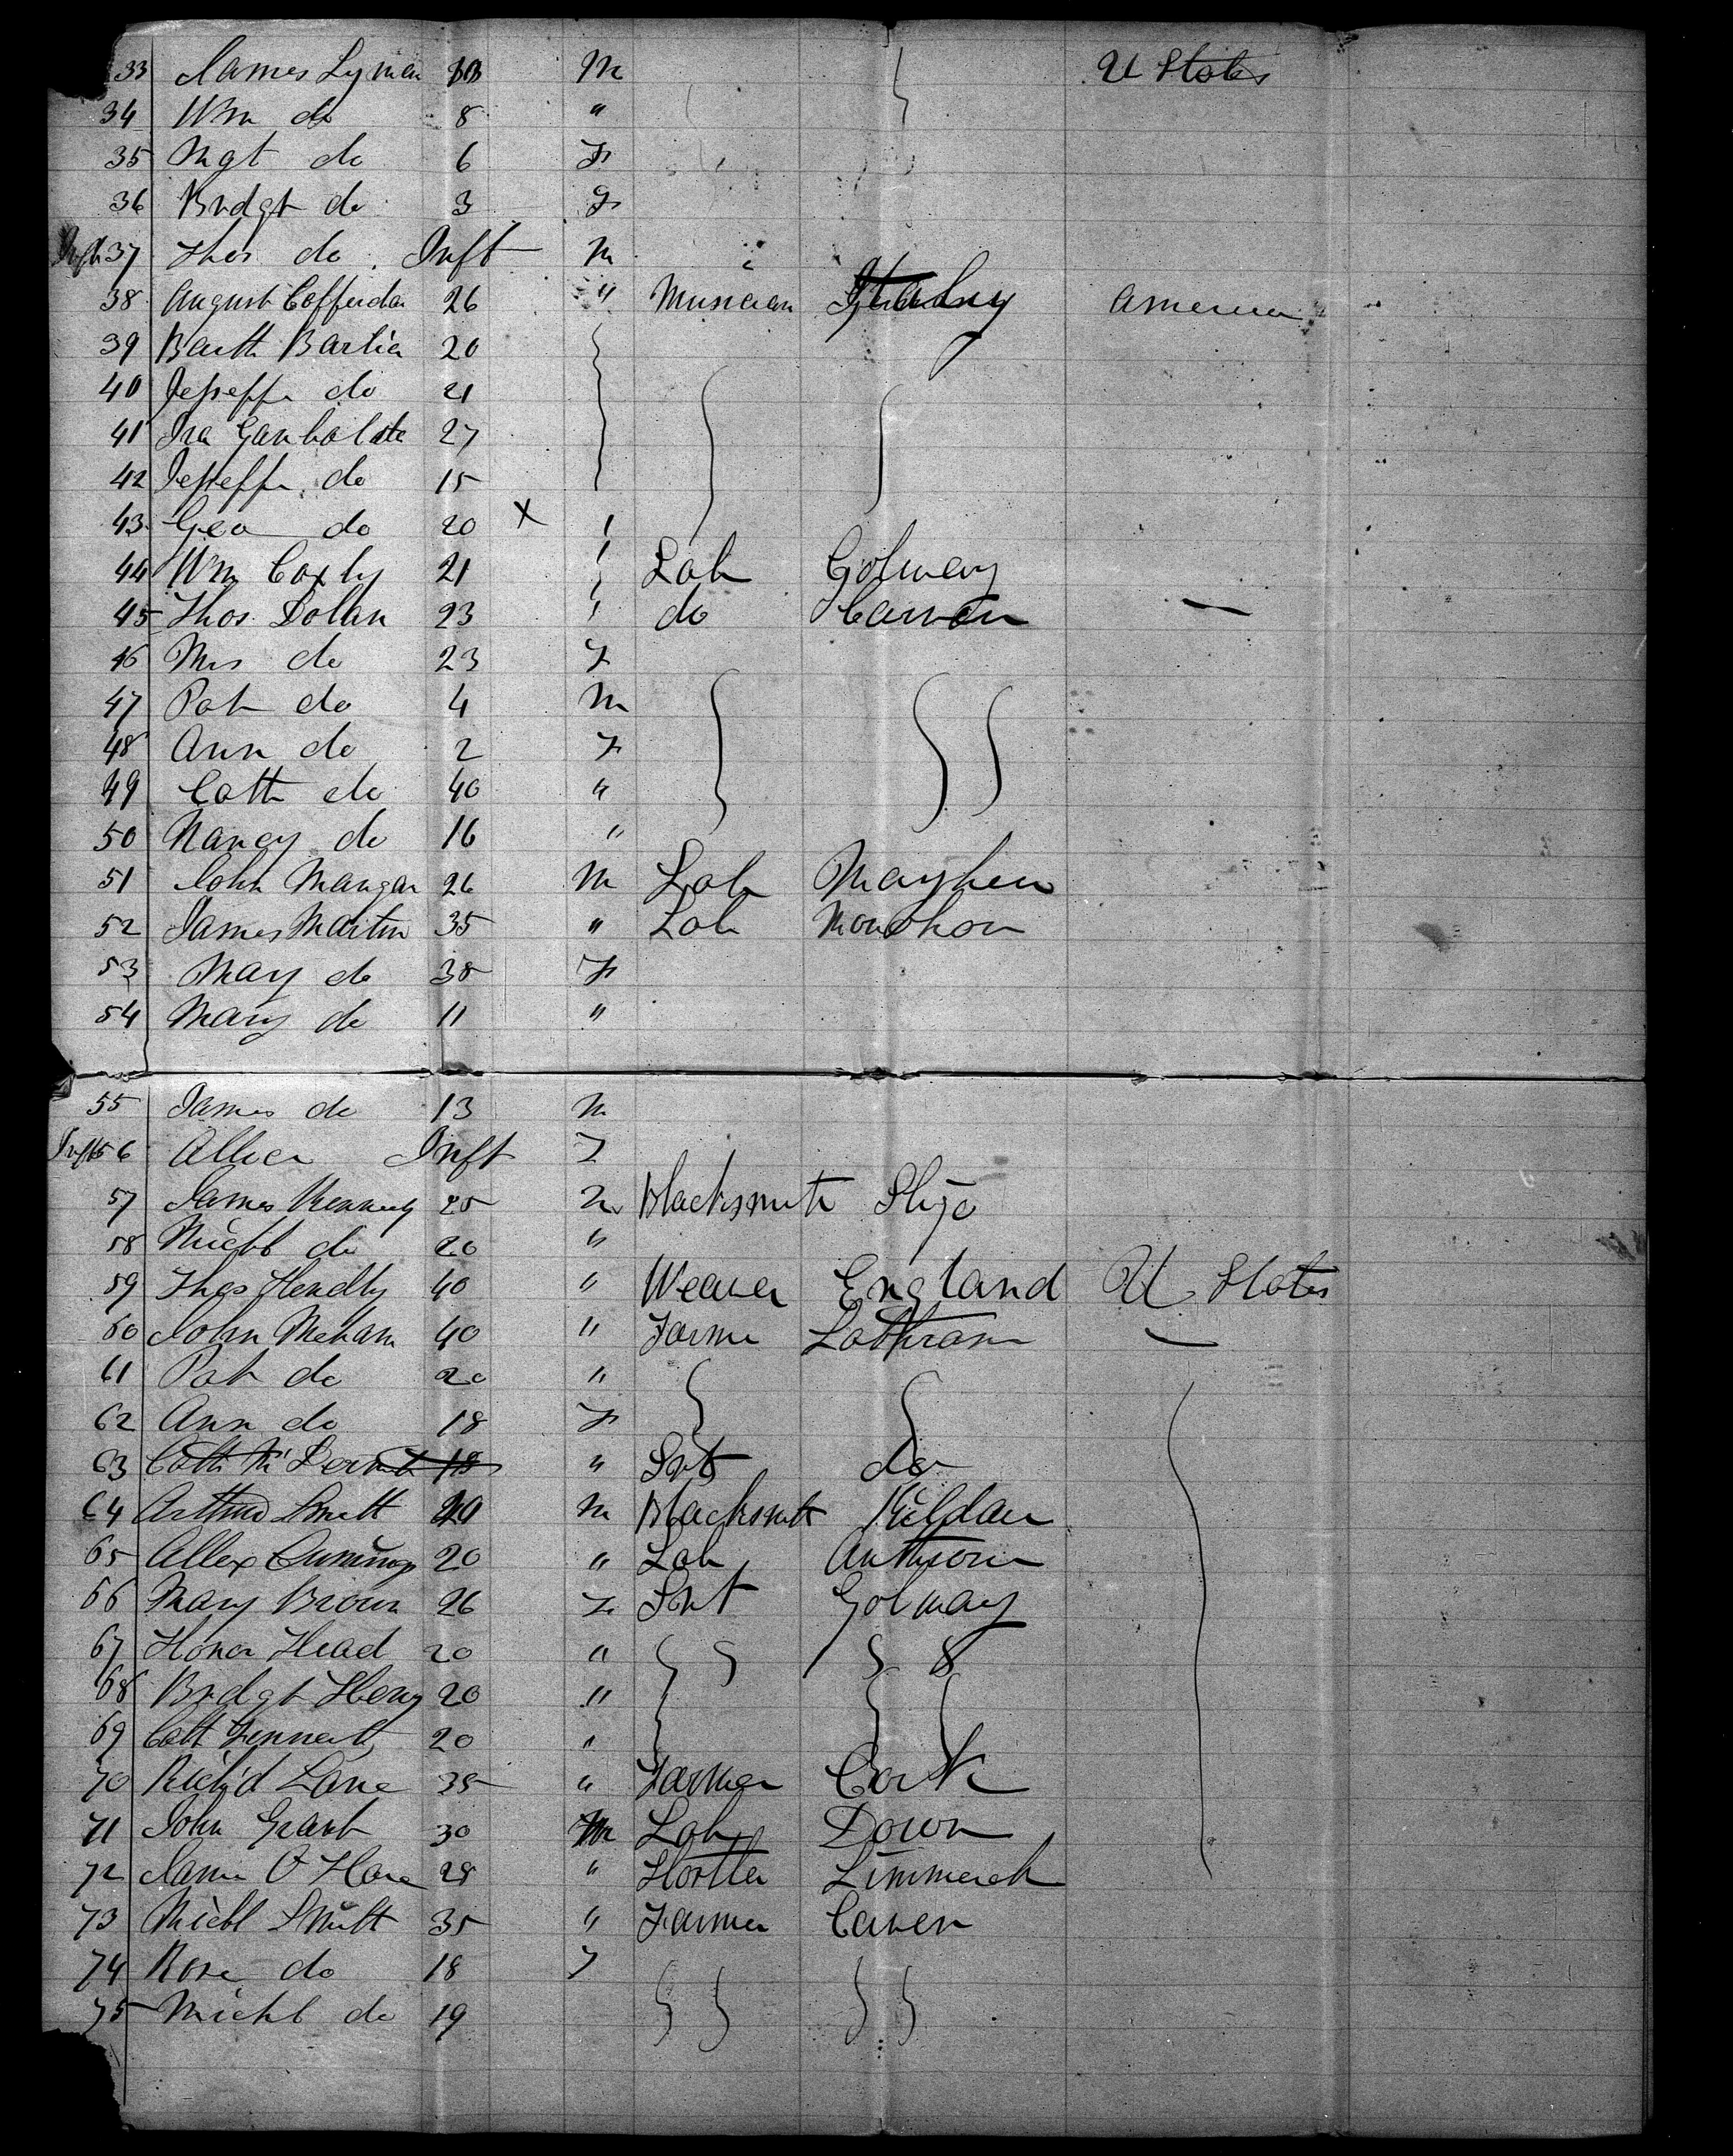 33 James Lyman M U States
34 Wm do 8 "
35 Mgt do 6 F
36 Bridgt do 3 F
Inft 37 Thos do Inft M
38 August 26 " Musician America
39 Barth 20
40 do 21
41 27
42 do 15
43 Geo do 20 X
44 Wm 21 Lab Golway
45 Thos Dolan 23 do Caven
46 Mrs do 23 F
47 Pat do 4 M
48 Ann do 2 F
49 Cath do 40 "
50 Nancy do 16 "
51 John Mangan 26 M Lab
52 James Martin 35 " Lab Monohon
53 Mary do 38 F
54 Mary do 11 "
55 James do 13 M
Inft 56 Inft F
57 James Kennedy 25 M Blacksmith Sligo
58 Michl do 20 "
59 Thos Hendly 40 " Weaver England U States
60 John 40 " Farmer
61 Pat do 20 "
62 Ann do 18 F
63 Cath Mc Dermot 18 " Svt do
64 Arthur Smith M Blacksmith Kildare
65 Allex 20 " Lab
66 Mary Brown 26 F Svt Golway
67 Honor Head 20 "
68 Bridgt 20 "
69 Cath 20 "
70 Rich'd Lane 35 " Farmer Cork
71 John Grant 30 M Lab Down
72 James O Hare 28 " Limmerick
73 Michl Smith 35 " Farmer Caven
74 Rose do 18 F
75 Michl do 19